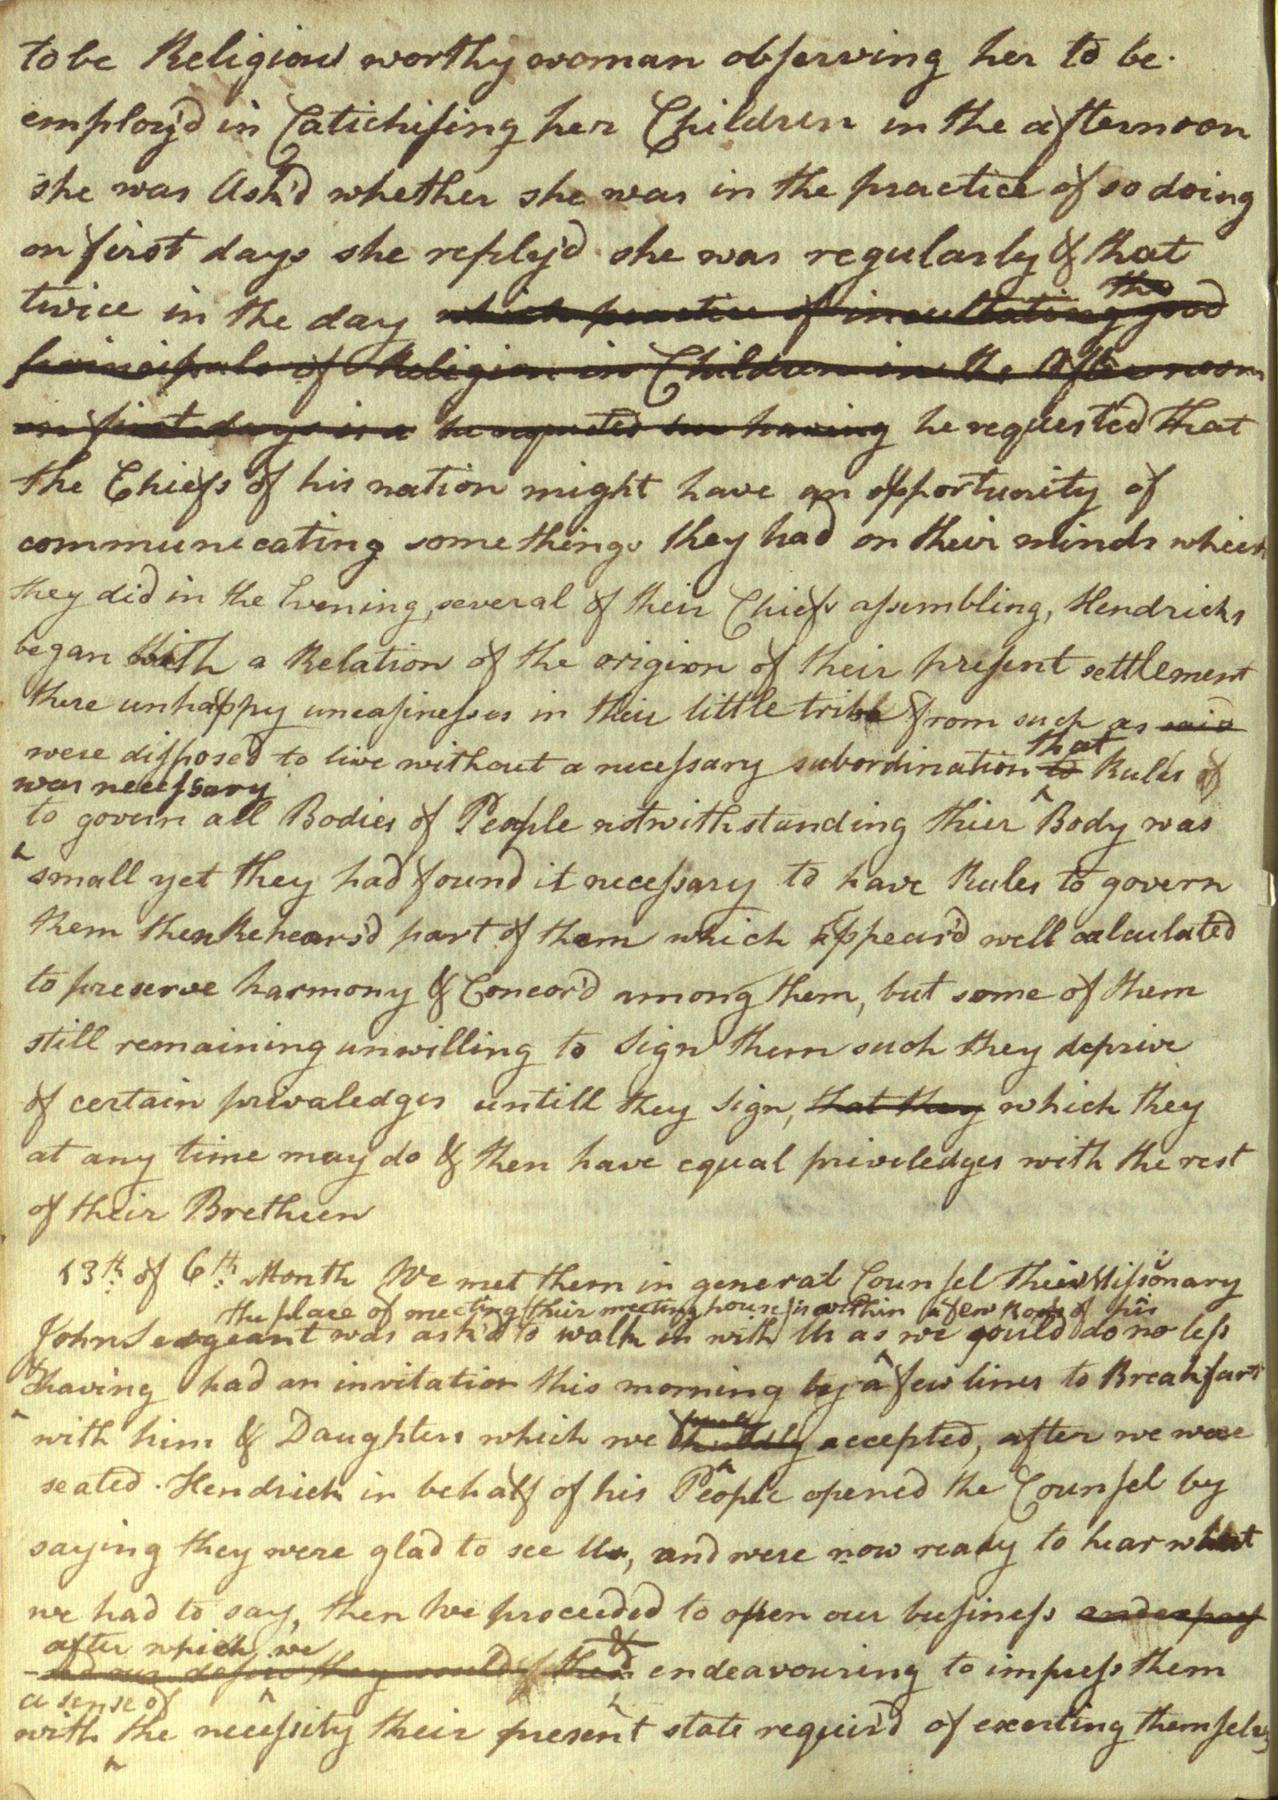 to be Religious worthy woman observing her to be
employ'd in Catichising her Children in the afternoon
she was Ask'd whether she was in the practice of so doing
on first days she reply'd she was regularly & that
the
twice in the day which practice of inculcating good
principals of Religion in Children in the Afternoon
on first days is a he requested our having he requested that
the Chiefs of his nation might have an opportunity of
communicating some things they had on their minds which
they did in the Evening, several of their Chiefs assembling, Hendricks
began with a Relation of the origion of their present settlement
there unhappy uneasinesses in their little tribe from such as said
that
were disposed to live without a necessary subordination to Rules of
was necessary
to govern all Bodies of People notwithstanding thier Body was
small yet they had found it necessary to have Rules to govern
them then Rehears'd part of them which appear'd well calculated
to preserve harmony & Concor'd among them, but some of them
still remaining unwilling to Sign them such they deprive
of certain privaledges untill they Sign, that they which they
at any time may do & then have equal priviledges with the rest
of their Brethren
13th of 6th Month We met them in general Counsel their Missionary
the place of meeting their meeting house is within a few Rods of his
John Sergeant was ask'd to walk in with Us as we could do no less
having had an invitation this morning by a few lines to Breakfast
with him & Daughters which we accepted, after we were
seated. Hendrick in behalf of his People opened the Counsel by
saying they were glad to see Us, and were now ready to hear what
we had to say, then we proceeded to open our business and express
after which we &
and our desire they would endeavouring to impress them
a sense of
with the necessity their present state requir'd of exerting themselves